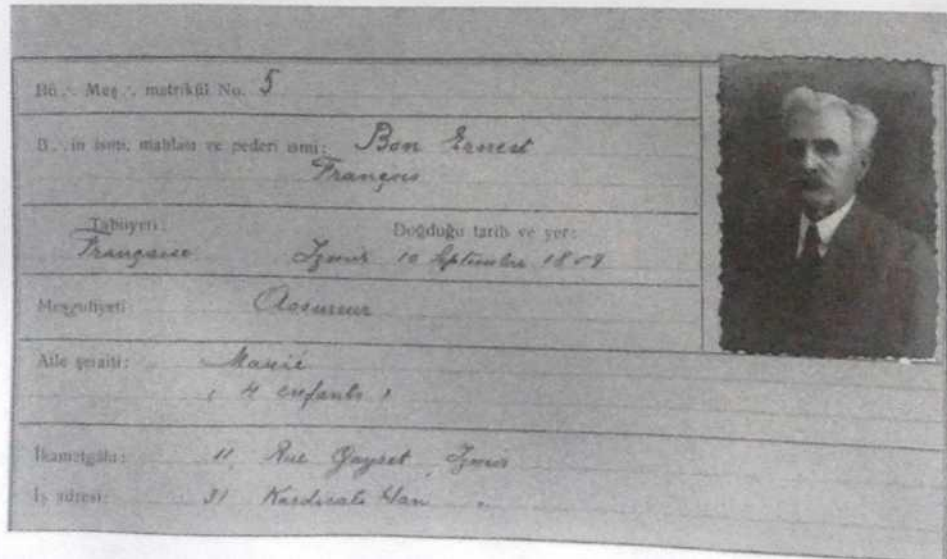 Bü ∴ Meş ∴ matrikül No. 5
B ∴ in ismi, mahlası ve pederi ismi: Bon Ernest
François
Tabiiyeti: Doğduğu tarih ve yer:
Française Izmir 10 Septembre 18
Meşguliyeti: Assureur
Aile şeraiti: Marié
4 enfants
İkametgâhı: 11, Rue Gayret, Izmir
İş adresi: 31 Kardicali Han "